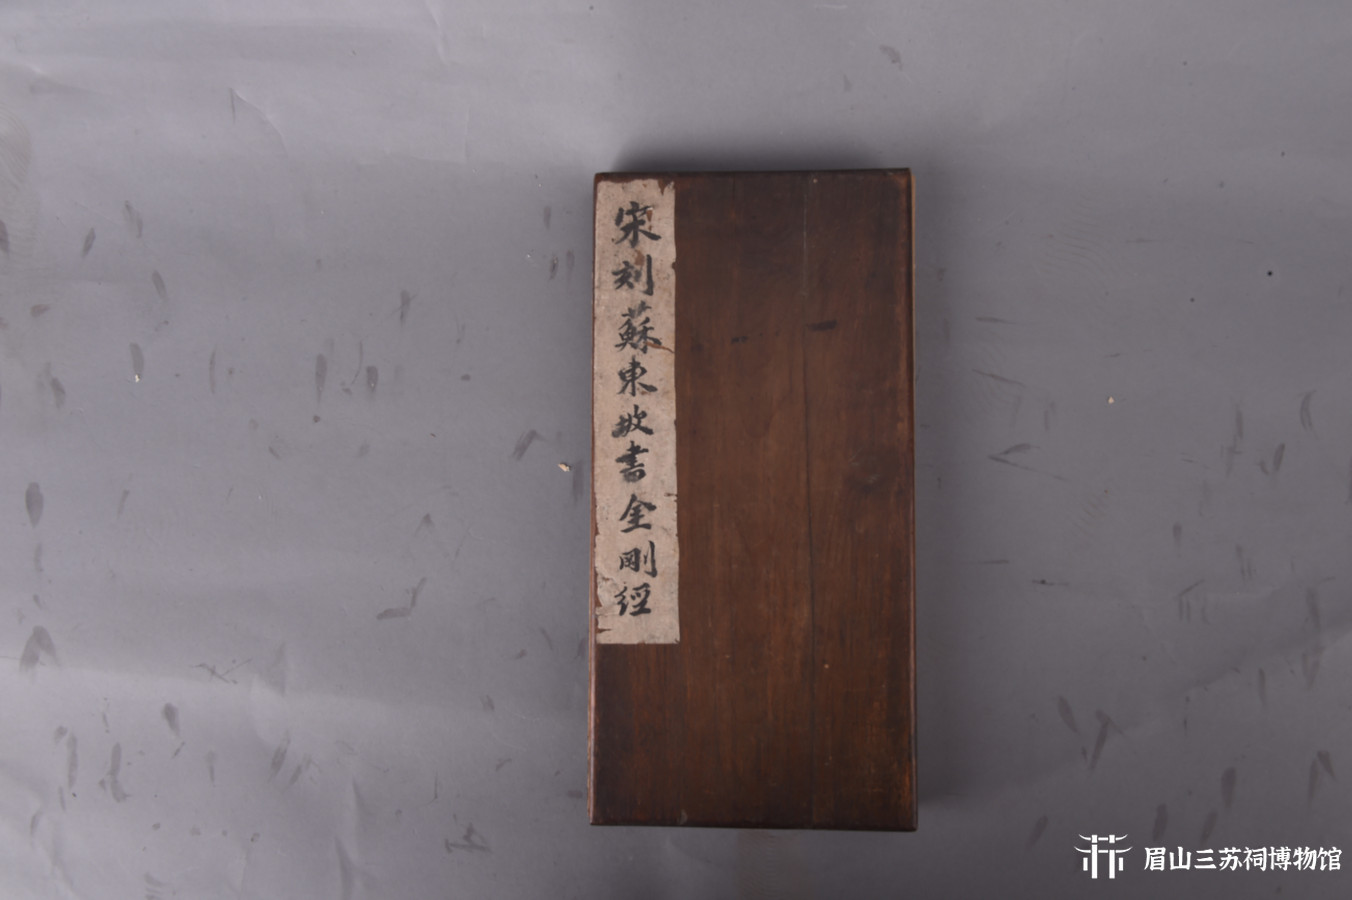 宋刻蘇東坡書金剛經
眉山三苏祠博物馆